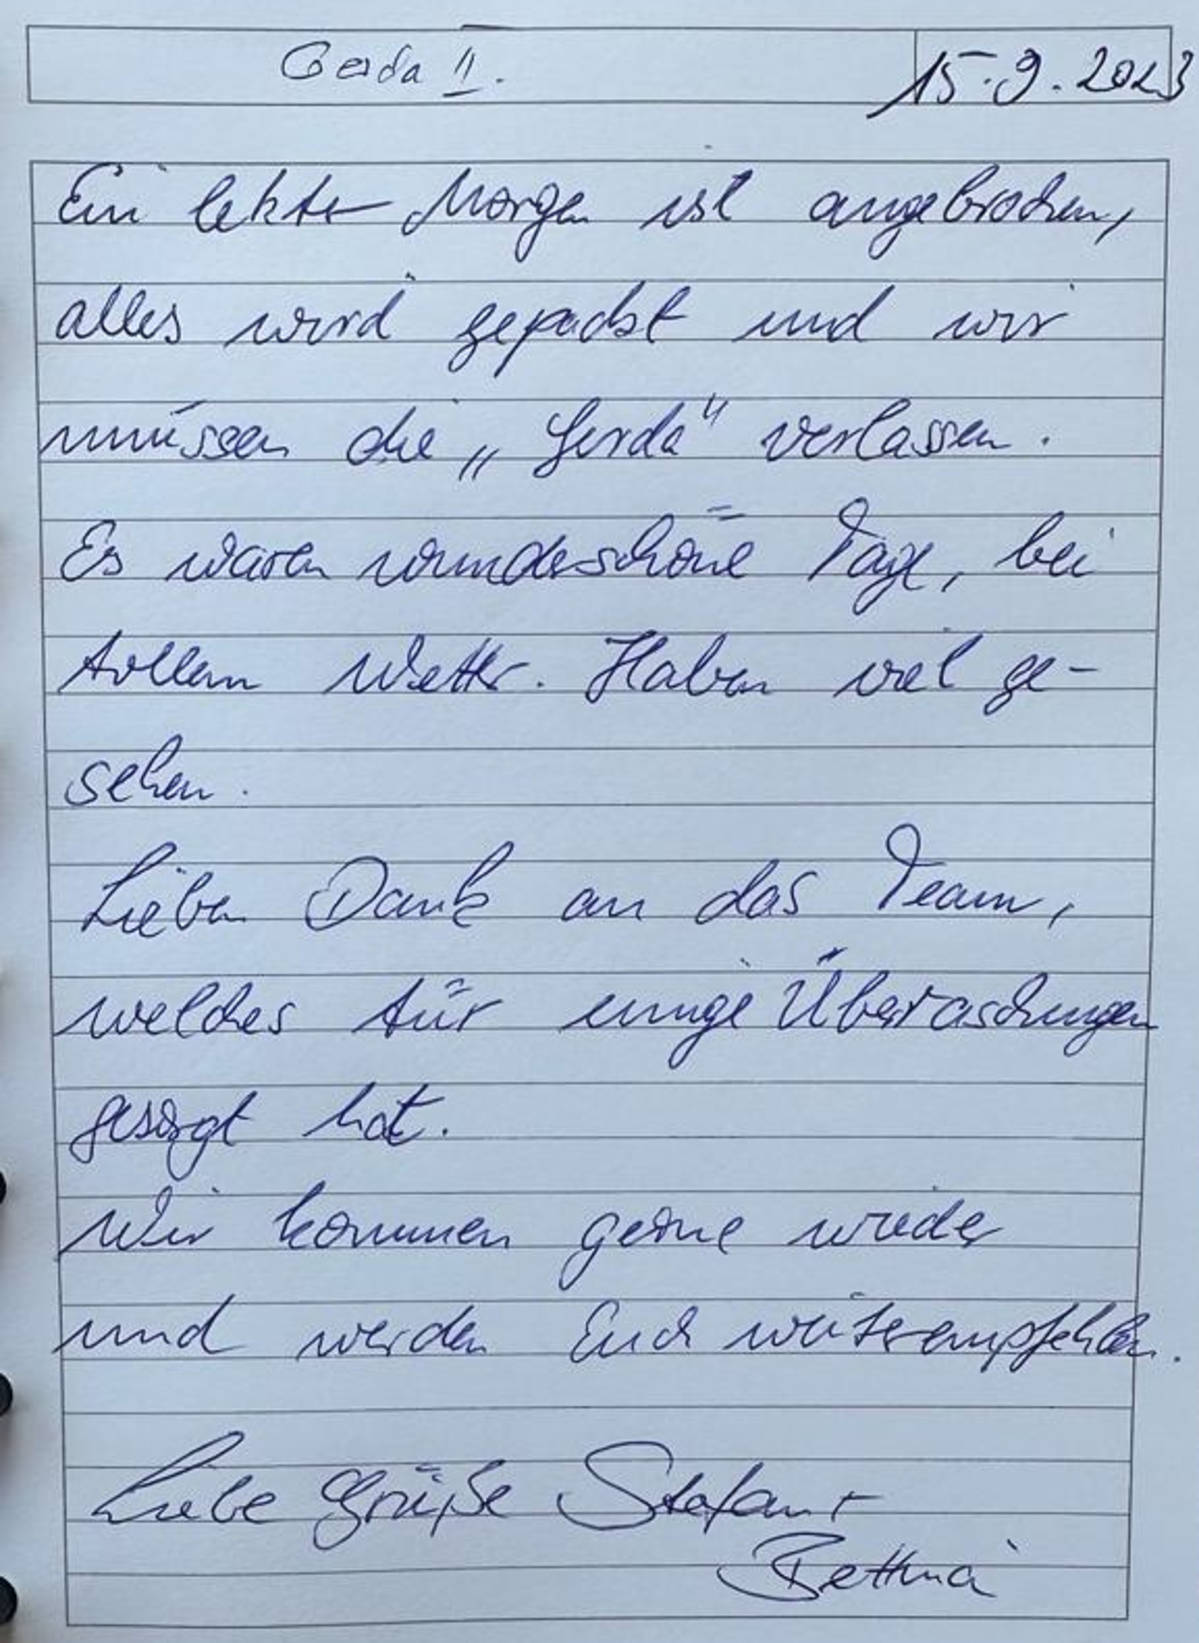 Gerda II.
15.9.2023
Ein letzter Morgen ist angebrochen,
alles wird gepackt und wir
müssen die „Gerda“ verlassen.
Es waren wunderschöne Tage, bei
tollem Wetter. Haben viel ge-
sehen.
Lieben Dank an das Team,
welches für einige Überraschungen
gesorgt hat.
Wir kommen gerne wieder
und werden Euch weiterempfehlen.
Liebe Grüße Stefan +
Bettina